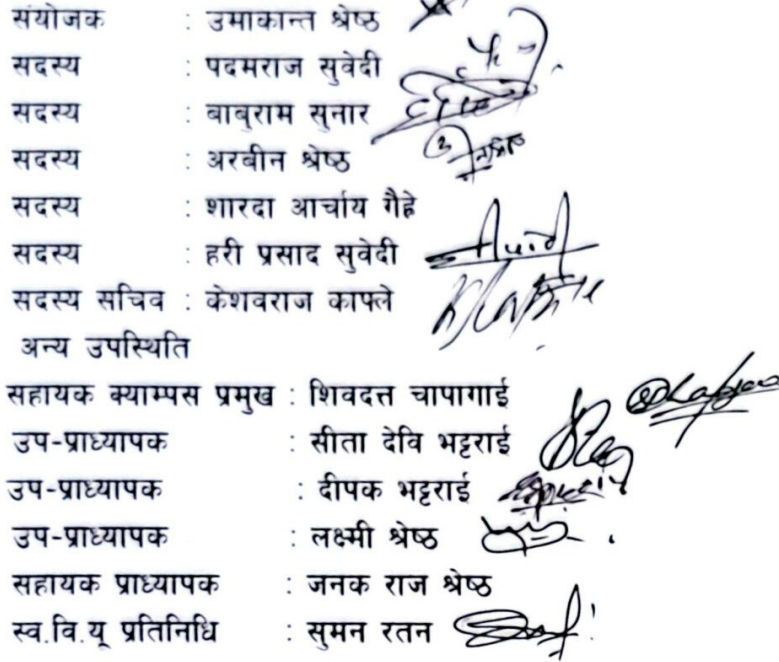 संयोजक : उमाकान्त श्रेष्ठ
सदस्य : पदमराज सुवेदी
सदस्य : बाबुराम सुनार
सदस्य : अरबीन श्रेष्ठ
सदस्य : शारदा आर्चाय गैह्रे
सदस्य : हरी प्रसाद सुवेदी
सदस्य सचिव : केशवराज काफ्ले
अन्य उपस्थिति
सहायक क्याम्पस प्रमुख : शिवदत्त चापागाई
उप-प्राध्यापक : सीता देवि भट्टराई
उप-प्राध्यापक : दीपक भट्टराई
उप-प्राध्यापक : लक्ष्मी श्रेष्ठ
सहायक प्राध्यापक : जनक राज श्रेष्ठ
स्व.वि.यू प्रतिनिधि : सुमन रतन